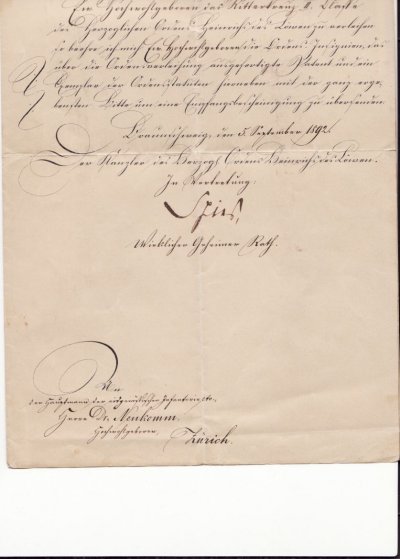 Ew. Hochwohlgeboren das Ritterkreuz II. Classe
des Herzoglichen Ordens Heinrichs des Löwen zu verleihen
so beehre ich mich Ew. Hochwohlgeboren die Ordens-Insignien, das
über die Ordensverleihung ausgefertigte Patent und ein
Exemplar der Ordensstatuten hierneben mit der ganz erge-
bensten Bitte um eine Empfangsbescheinigung zu übersenden
Braunschweig, den 5. September 1892.
Der Kanzler des Herzogl. Ordens Heinrichs des Löwen.
In Vertretung:
Spies,
Wirklicher Geheimer Rath.
An
den Hauptmann der Infanterie etc.
Herrn Dr. Neukomm
Hochwohlgeboren
Zürich.